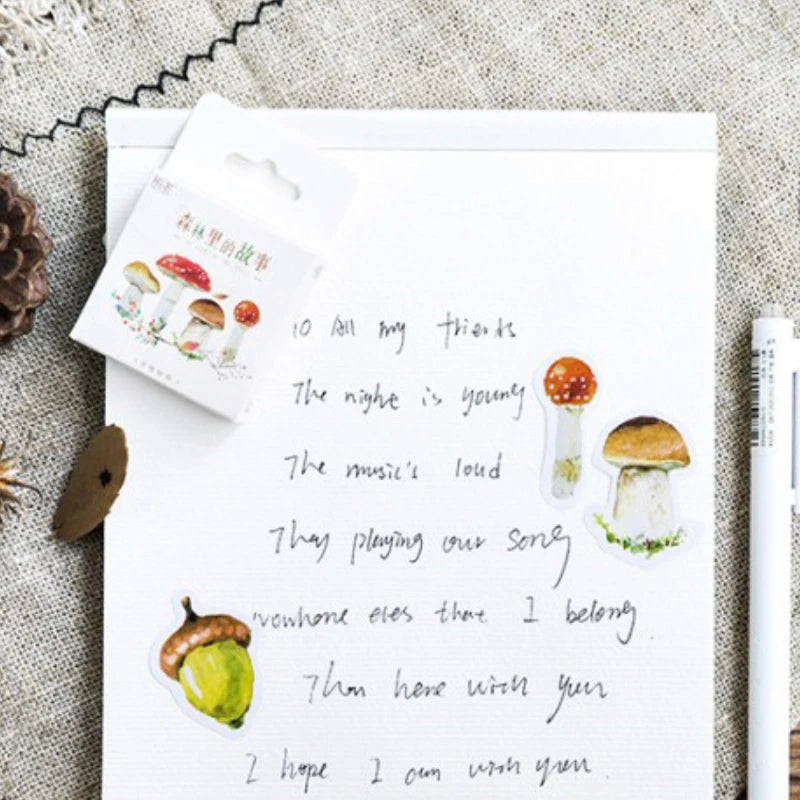 森林里的故事
To All my friends
The night is young
The music's loud
They playing our song
eles that I belong
Than here wich you
I hope I am wich you.